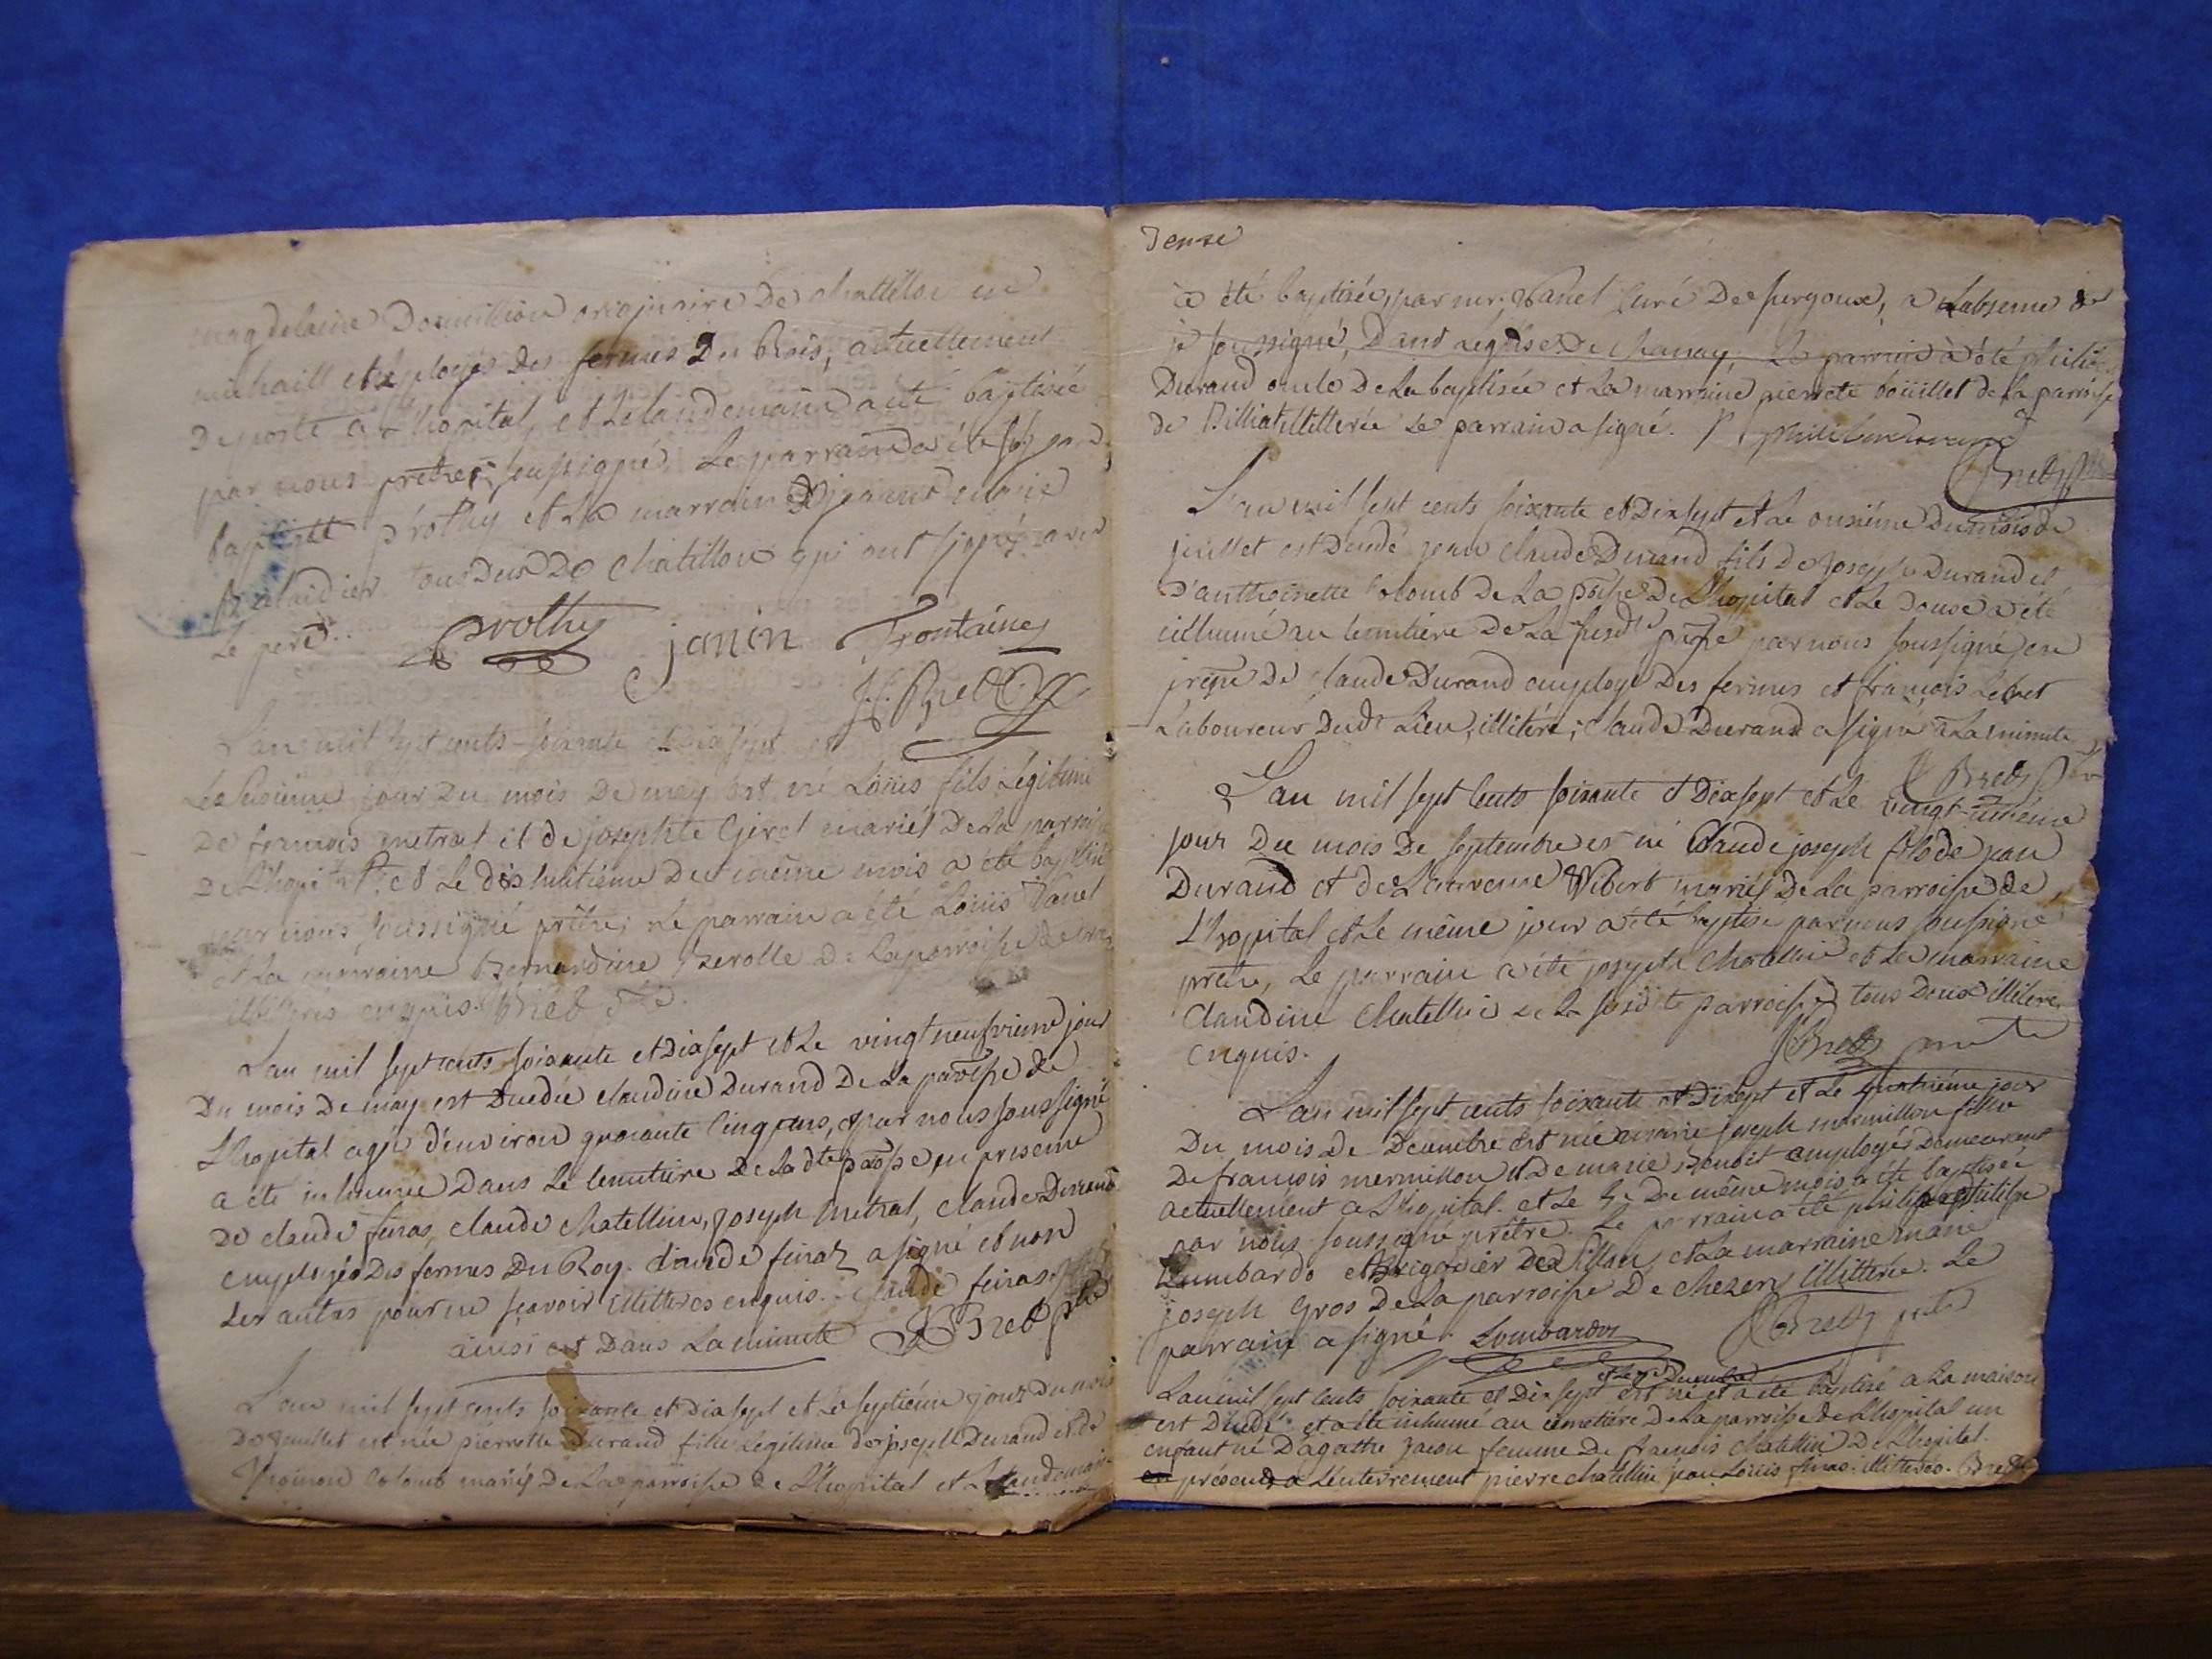 magdelaine Domillion originaire De chattillon en
michaill employés des fermes Du Rois, actuellement
De poste a L'hopital, et Lelandemain a été baptisée
par nous prêtre soussigné, Le parrain a été
baptiste prothy et La marraine jeanne marie
tous Deux De Chatillon qui ont signés avec
Le pere.
prothy janin Frontaine
Bret
L'an mil sept cents soixante et Dix sept et
Le jour Du mois De may est né Loüis fils Légitime
De francois metral et de josephte Giret mariés De La parroisse
De L'hopital et Le dix huitiéme Du même mois a été baptisé
par nous soussigné prêtre, Le parrain a été Loüis Vanel
et La marraine Bernardine De La parroisse de
illitérés enquis. Bret
L'an mil sept cents soixante et Dix sept et Le vingt neufvieme jour
Du mois De may est Duedée claudine Durand De La paroisse de
L'hopital agée d'environ quarante Cinq ans, et par nous soussigné
a été inhumée Dans Le Cemitiére De La dte paroisse, en presence
De claude finas, claude chatellin, joseph metral, claude Durand
employés Des fermes Du Roy. claude finaz a signé et non
Les autres pour ne sçavoir illitteres enquis. claude finas.
ainsi est Dans La minute Bret
L'an mil sept cents soixante et Dix sept et Le septiéme jour Du mois
De juillet est née pierrette Durand fille Légitime De joseph Durand et de
Colomb mariés De La parroisse de L'hopital et Lelandemain
Douze
à été baptisée, par mr. Vanel Curé De surjoux, a Labsence de
je soussigné, Dans Léglise De chanay, Le parrain à été philibert
Durand oncle De La baptisée et La marraine pierrete boüillet de la parroisse
de Billiat illitterée Le parrain a signé. philibert durand
Bret
L'an mil sept cents soixante et Dix sept et Le onsiéme Du mois de
juillet est Duedé jean claude Durand fils De joseph Durand et
D'anthoinette Colomb De La De L'hopital et Le Douse a été
inhumé au Cemitiére De La par nous soussigné, en
De claude Durand employé Des fermes et francois
Laboureur Dudt Lieu, illitéré; claude Durand a signé à La minute
Bret
L'an mil sept Cents soixante et Dix sept et Le vingt
jour Du mois De septembre est né Claude joseph fils de jean
Durand et de Laurence Vibert mariés De La parroisse de
L'hopital et Le même jour a été baptisé par nous soussigné
prêtre, Le parrain a été joseph Chatellin et La marraine
Claudine Chatellin de La parroisse, tous Deux illitérés
enquis.
Bret
L'an mil sept cents soixante et Dix sept et Le quatriéme jour
Du mois De Decembre est née marie joseph mermillon fille
De francois mermillon et De marie Benoit employés Demeurant
actuellement a L'hopital. et Le 5e Du même mois a été baptisée
par nous soussigné prêtre. Le parrain a été
Lumbardo et La marraine marie
joseph Gros De La parroisse De chezery illitterée. Le
parrain a signé. Lombardoz Bret
Decembre
L'an mil sept Cents soixante et Dix sept est né et a été baptisé a La maison
est Duedé et a été inhumé au cimetiére De La parroisse de L'hopital un
enfant né D'agathe femme De francois chatellin De L'hopital.
présents a Lenterrement pierre chatellin jean Loüis finas. illitterés. Bret